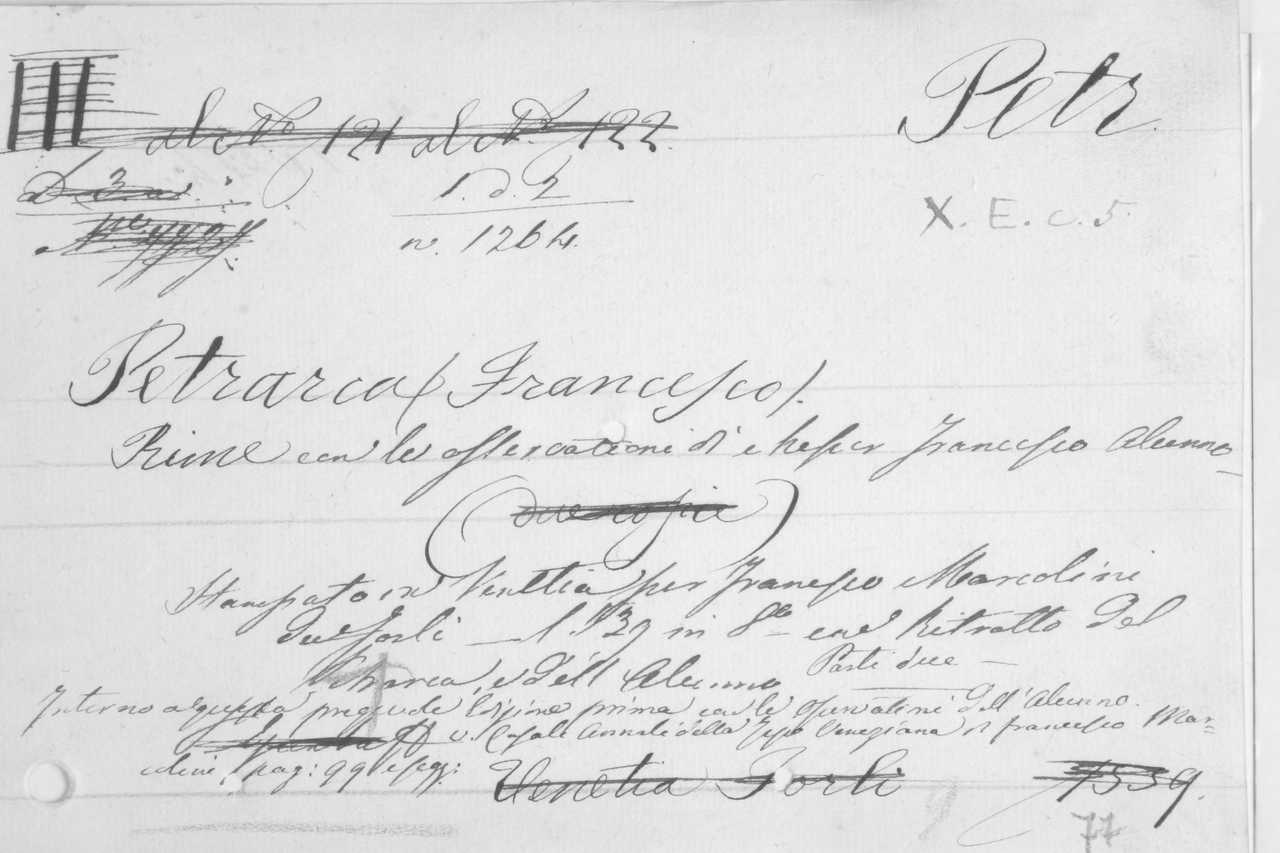 III al N.º 121 al N.º 122.
Petr.
1. d. 2
X. E. c. 5.
n. 1264.
Petrarca (Francesco).
Rime con le osservationi di Messer Francesco Alunno
(due copie)
Stampato in Venetia per Francesco Marcolini
da Forlì 1539 in 8º con Ritratto del
Petrarca, e dell'Alunno Parti due
Intorno a questa pregevole Edizione prima con le Osservationi dell'Alunno.
v. Casali Annali della Tipo Veneziana di Francesco Mar=
colini, pag: 99 e segg:
Venetia Forlì 1539.
77